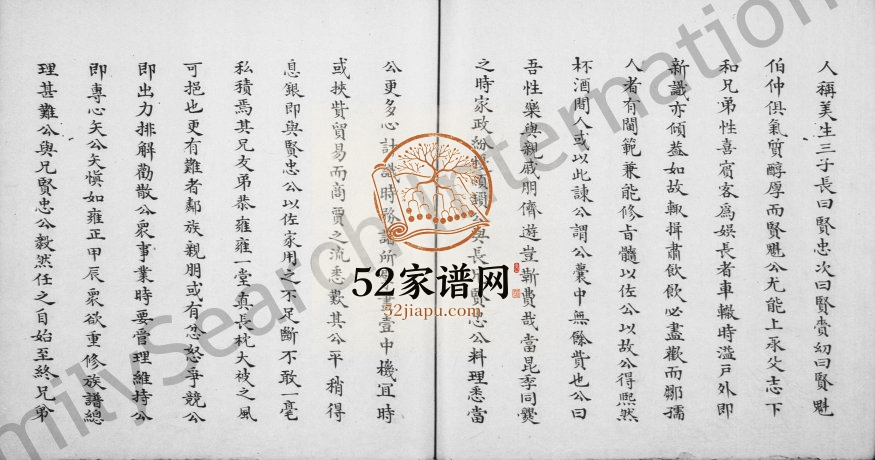 人稱美生三子長曰賢忠次曰賢貴幼曰賢魁
伯仲俱氣質醇厚而賢魁公尤能上承父志下
和兄弟性喜賓客為娛長者車轍時溢戶外即
新識亦傾蓋如故輒揖肅飲飲必盡歡而鄒孺
人者有閫範兼能修旨髓以佐公以故公得熙然
杯酒間人或以此諫公謂公囊中無餘貲也公曰
吾性樂與親戚朋儕遊豈靳費哉當昆季同爨
之時家政紛 與長 賢忠公料理悉當
公更多心計 時務 所 中機宜時
或挾貲貿易而商賈之流悉歎其公平稍得
息銀即與賢忠公以佐家用之不足斷不敢一毫
私積焉其兄友弟恭雍雍一堂真長枕大被之風
可挹也更有難者鄰族親朋或有忿怒爭競公
即出力排解勸散公衆事業時要管理維持公
即專心矢公矢慎如雍正甲辰衆欲重修族譜總
理甚難公與兄賢忠公毅然任之自始至終兄弟
52家谱网
52jiapu.com
FamilySearch International